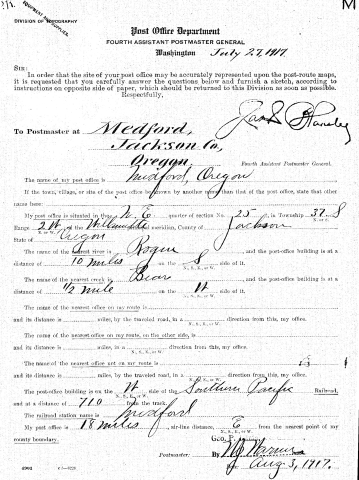 DIVISION OF TOPOGRAPHY
M
Post Office Department
FOURTH ASSISTANT POSTMASTER GENERAL
Washington July 27, 1917
SIR:
In order that the site of your post office may be accurately represented upon the post-route maps,
it is requested that you carefully answer the questions below and furnish a sketch, according to
instructions on opposite side of paper, which should be returned to this Division as soon as possible.
Respectfully,
To Postmaster at Medford,
Jackson Co,
Oregon.
Fourth Assistant Postmaster General.
The name of my post office is Medford, Oregon
If the town, village, or site of the post office be known by another name than that of the post office, state that other
name here:
My post office is situated in the N. E. quarter of section No. 25, in Township 37 S
Range 2 W Willamette meridian, County of Jackson
State of Oregon
The name of the nearest river is Rogue and the post-office building is at a
distance of 10 miles on the S side of it.
The name of the nearest creek is Bear and the post-office building is at a
distance of 1/2 mile on the W side of it.
The name of the nearest office on my route is
and its distance is miles, by the traveled road, in a direction from this, my office.
The name of the nearest office on my route, on the other side, is
and its distance is miles, in a direction from this, my office.
The name of the nearest office not on my route is
and its distance is miles, by the traveled road, in a direction from this, my office.
The post-office building is on the W side of the Southern Pacific Railroad,
and at a distance of 710 from the track.
The railroad station name is Medford
My post office is 18 miles, air-line distance, E from the nearest point of my
county boundary.
Postmaster: By
Aug 3, 1917.